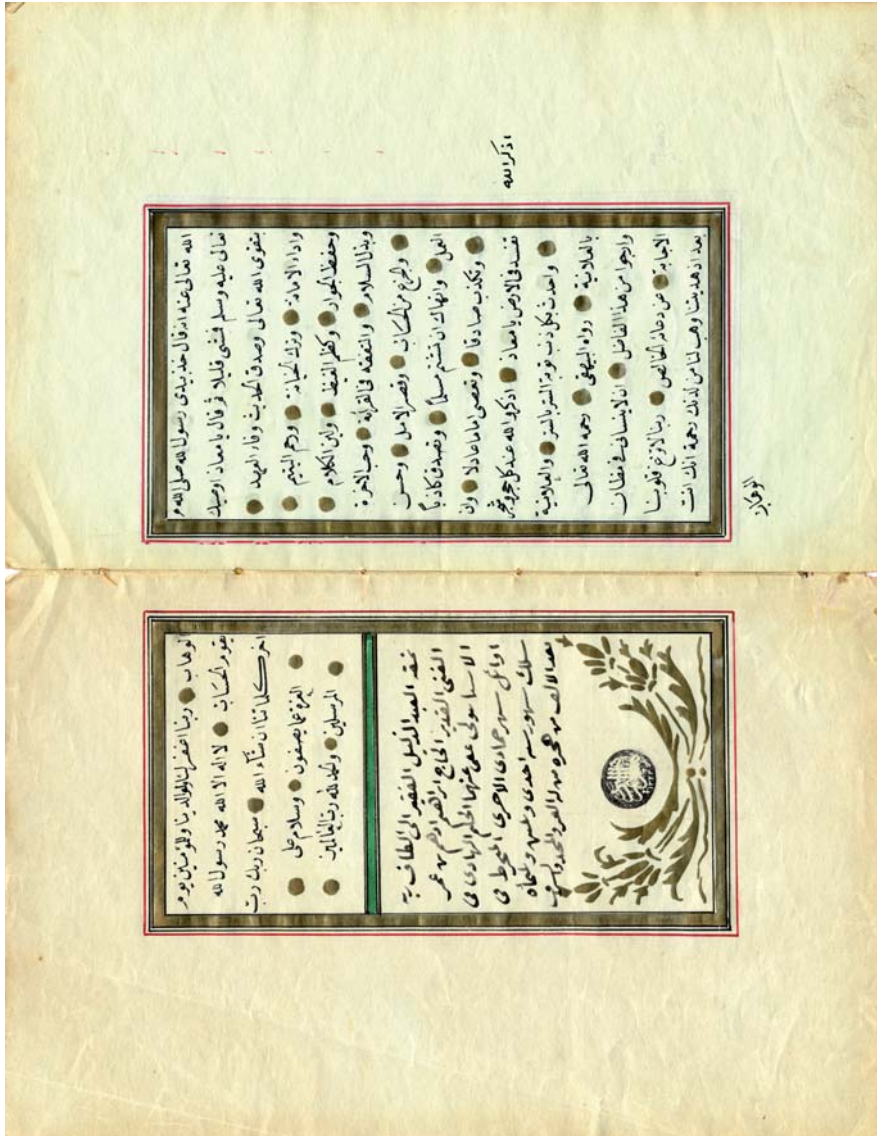 الله تعالى عنه انه قال اخذ بيدى رسول الله صلى الله
تعالى عليه وسلم فمشى قليلا ثم قال يا معاذ اوصيك
بتقوى الله تعالى وصدق الحديث وفاء العهد
واداء الامانة وترك الخيانة ورحم اليتيم
وحفظ الجوار وكظم الغيظ ولين الكلام
وبذل السلام والتفقه فى القرآن وحب الآخرة
والجزع من الحساب وقصر الامل وحسن
العمل وانهاك ان تشتم مسلما وتصدق كاذبا
وتكذب صادقا وتعصى اماما عادلا وان
تفسد فى الارض يا معاذ اذكر الله عند كل حجر وشجر
واحدث بكل ذنب توبة السر بالسر والعلانية
بالعلانية رواه البيهقى رحمه الله تعالى
وارجوا من هذا الفاضل ان لا ينسانى فى مظان
الاجابة من دعائه الخالص ربنا لا تزغ قلوبنا
بعد اذ هديتنا وهب لنا من لدنك رحمة انك انت
اذكر الله
الوهاب
الوهاب ربنا اغفر لنا ولوالدينا وللمؤمنين يوم
يقوم الحساب لا اله الا الله محمد رسول الله
آخر كلماتنا ان شاء الله سبحان ربك رب
العزة عما يصفون وسلام على
المرسلين والحمد لله رب العالمين
نمقه العبد الذليل الفقير الى الطاف ربه
الغنى القدير الحاج ابراهيم ادهم بن عمر
عفى عنهما الهادى فى
اوائل شهر جمادى الاخرى المنخرط فى
سلك شهور سنه احدى وخمسين وثلثمائة
بعد الالف من هجرة من له العز والشرف